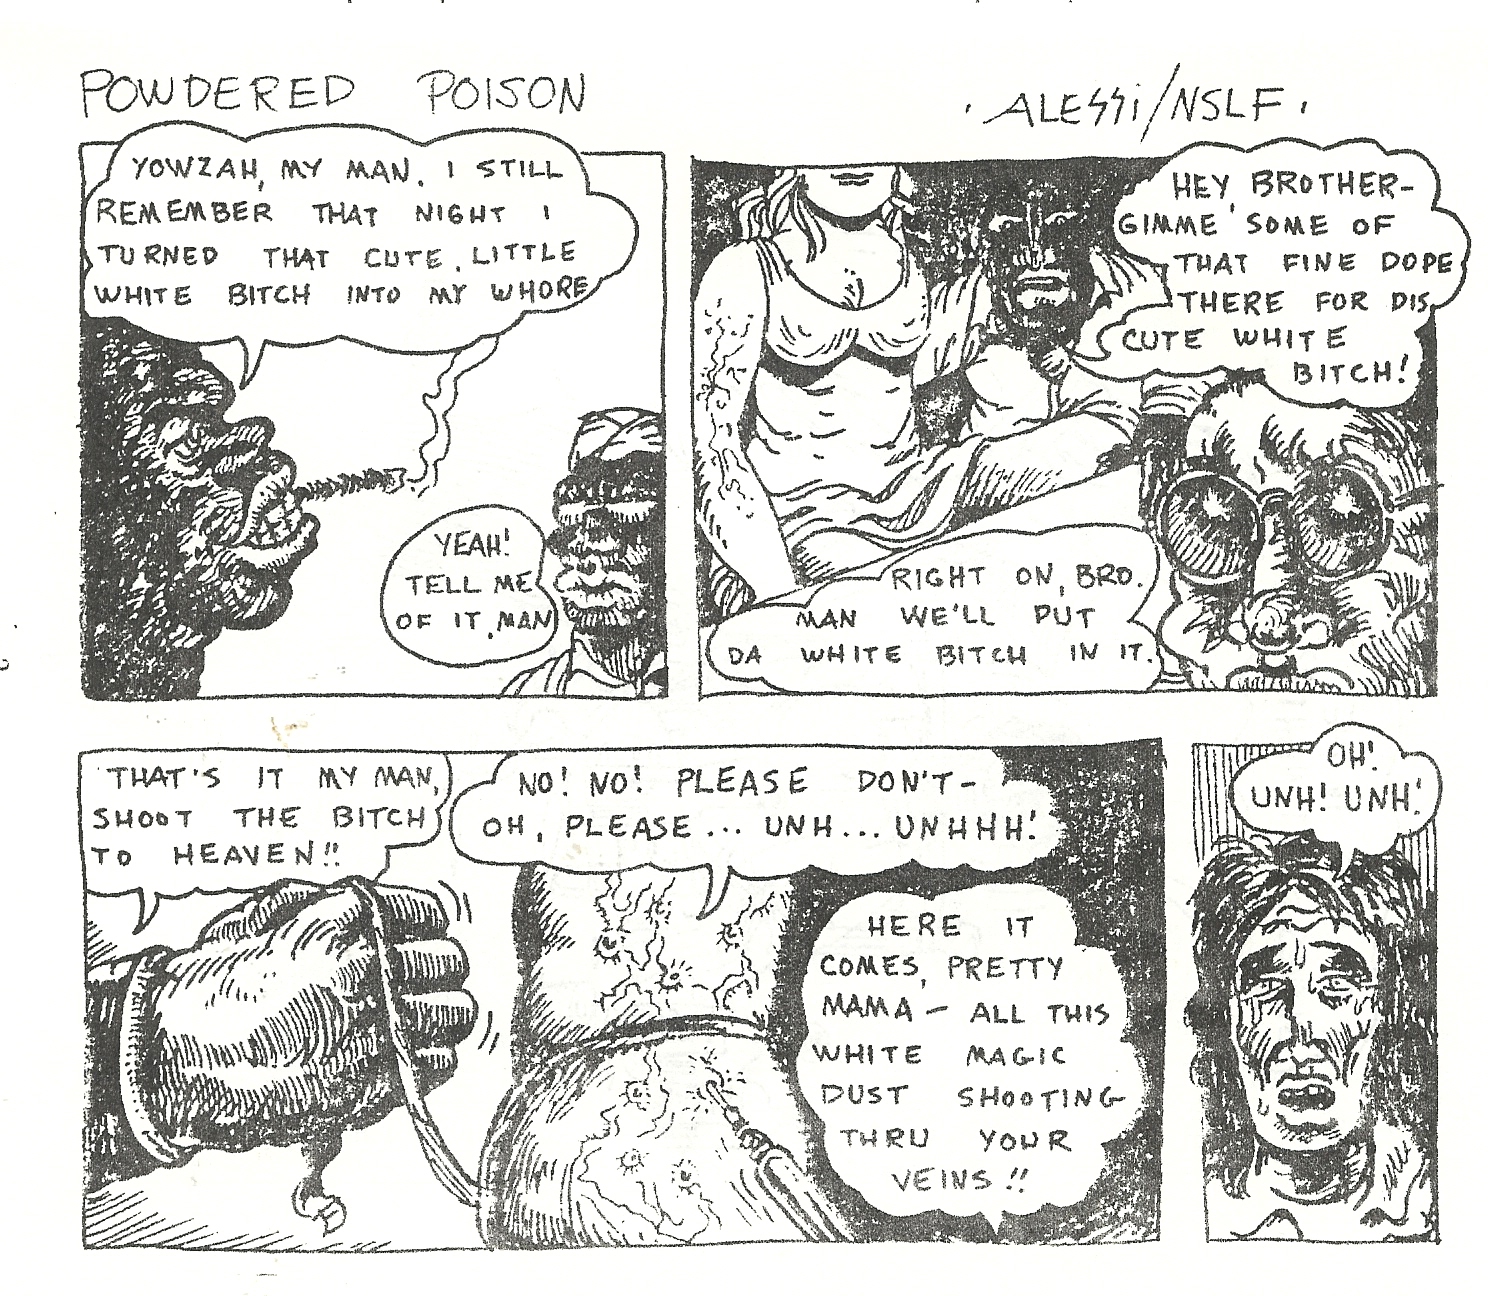 POWDERED POISON
. ALESSI/NSLF .
YOWZAH, MY MAN. I STILL
REMEMBER THAT NIGHT I
TURNED THAT CUTE, LITTLE
WHITE BITCH INTO MY WHORE
YEAH!
TELL ME
OF IT, MAN
HEY, BROTHER-
GIMME SOME OF
THAT FINE DOPE
THERE FOR DIS
CUTE WHITE
BITCH!
RIGHT ON, BRO.
MAN WE'LL PUT
DA WHITE BITCH IN IT.
THAT'S IT MY MAN,
SHOOT THE BITCH
TO HEAVEN!!
NO! NO! PLEASE DON'T-
OH, PLEASE... UNH... UNHHH!
HERE IT
COMES, PRETTY
MAMA - ALL THIS
WHITE MAGIC
DUST SHOOTING
THRU YOUR
VEINS!!
OH!
UNH! UNH!